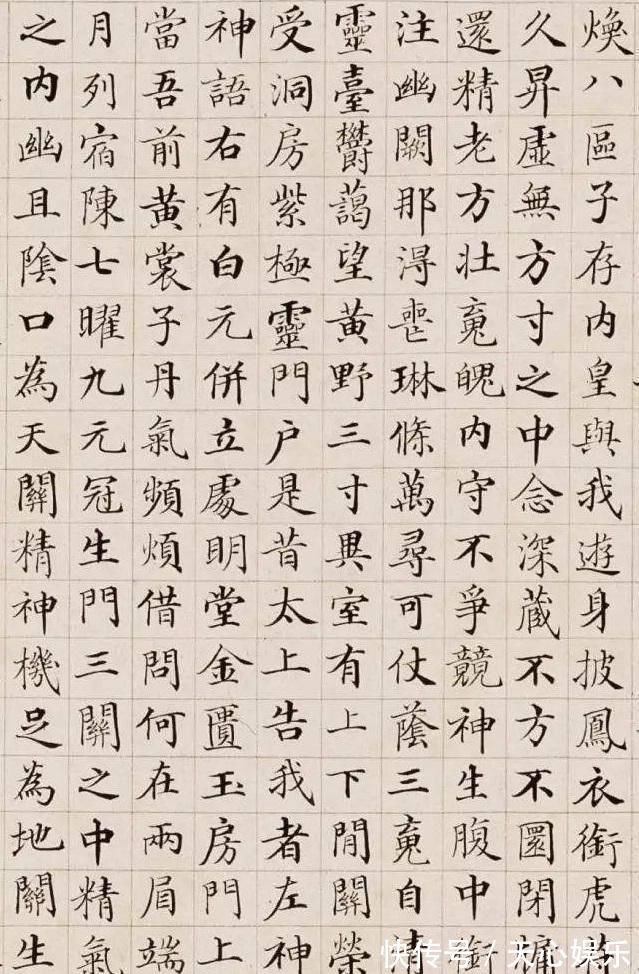 煥八區子存内皇與我遊身披鳳衣銜虎
久昇虛無方寸之中念深藏不方不圓閉
還精老方壯䰟魄内守不爭競神生腹中銜
注幽闕那得喪琳條萬尋可仗蔭三䰟自
靈臺欝藹望黃野三寸異室有上下間關榮
受洞房紫極靈門户是昔太上告我者左神
神語右有白元併立處明堂金匱玉房門上
當吾前黃裳子丹氣頻煩借問何在兩眉端
月列宿陳七曜九元冠生門三關之中精氣
之内幽且陰口為天關精神機足為地關生
快传号/天心娱乐